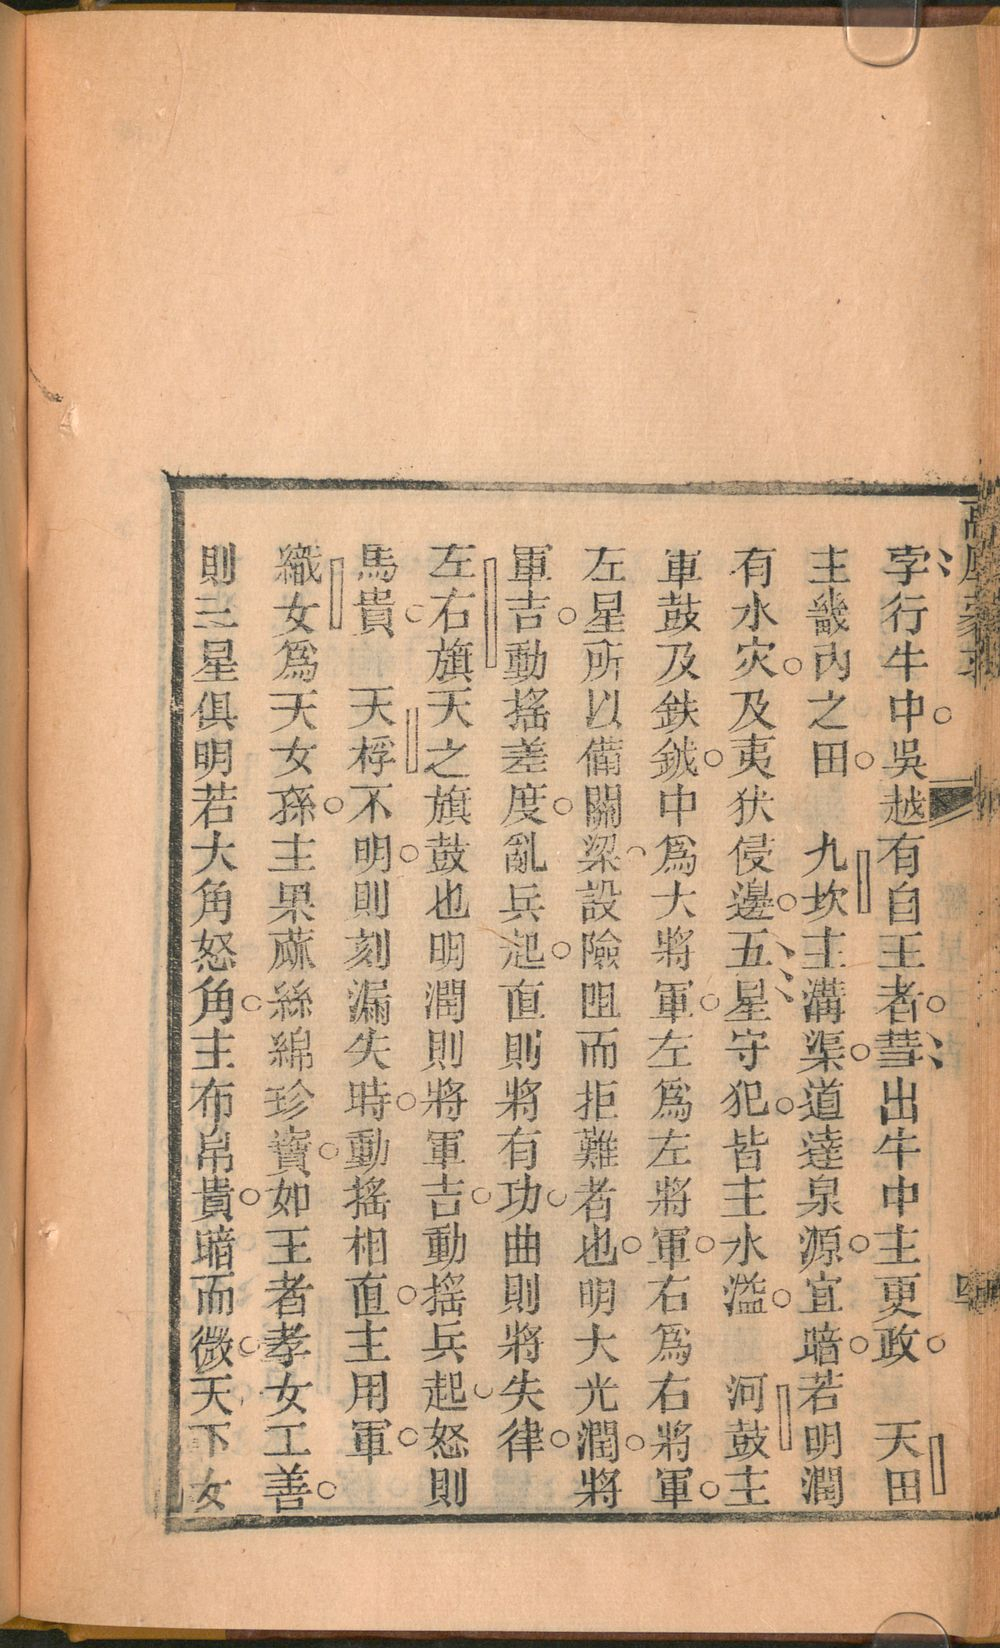 孛行牛中吳越有自王者彗出牛中主更政　天田
主畿內之田　九坎主溝渠道達泉源宜暗若明潤
有水灾及夷狄侵邊五星守犯皆主水溢　河鼓主
軍鼓及鈇鉞中爲大將軍左爲左將軍右爲右將軍
左星所以備關梁設險阻而拒難者也明大光潤將
軍吉動搖差度亂兵起直則將有功曲則將失律
左右旗天之旗鼓也明潤則將軍吉動搖兵起怒則
馬貴　天桴不明則刻漏失時動搖相直主用軍
織女爲天女孫主果蓏絲綿珍寶如王者孝女工善
則三星俱明若大角怒角主布帛貴暗而微天下女